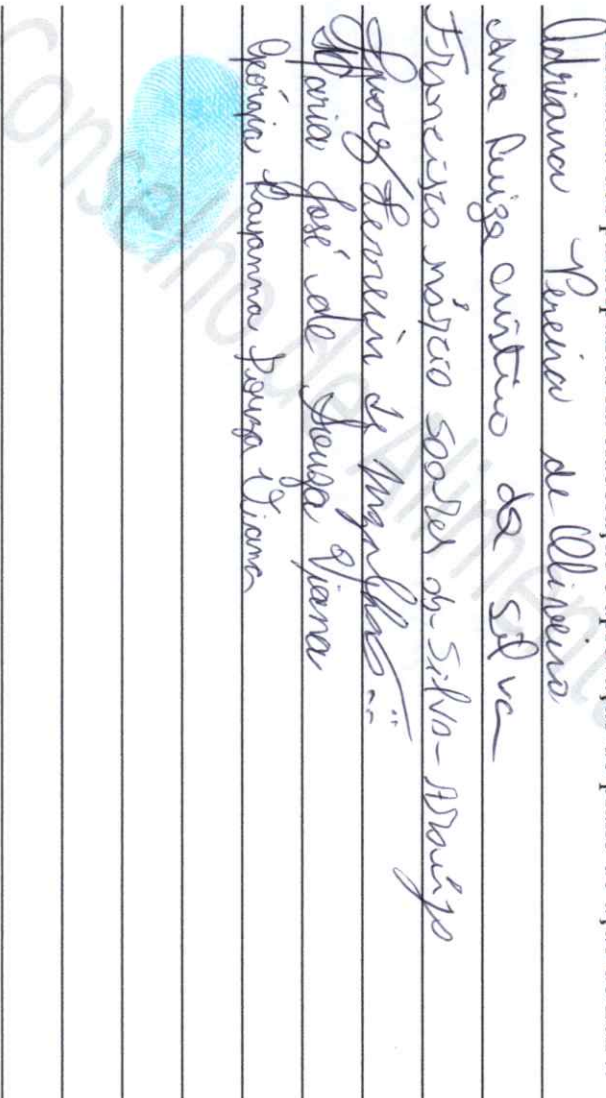 Adriana Pereira de Oliveira
Ana Luiza Cristino da Silva
Francisco Márcio Soares da Silva - Araújo
Ferreira de Magalhães
Maria José de Souza Viana
Geórgia Rayanna Souza Viana
Conselho de Aliment